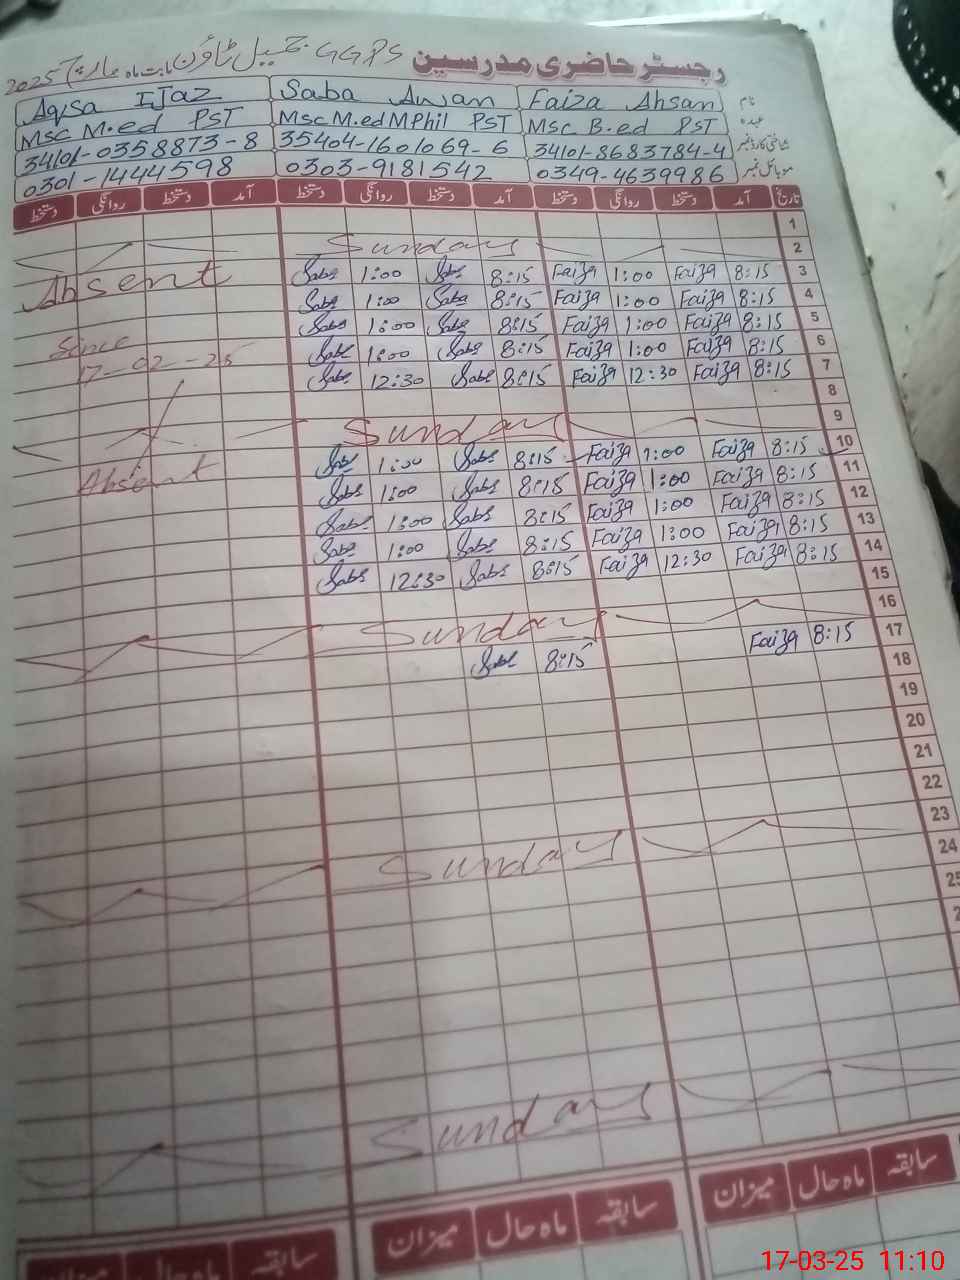 رجسٹر حاضری مدرسین GGPS جمیل ٹاؤن بابت ماہ مارچ 2025
نام Faiza Ahsan Saba Awan Aqsa Ijaz
عہدہ Msc B.ed PST Msc M.ed MPhil PST Msc M.ed PST
شناختی کارڈ نمبر 34101-8683784-4 35404-1601069-6 34101-0358873-8
موبائل نمبر 0349-4639986 0303-9181542 0301-1444598
تاریخ آمد دستخط روانگی دستخط آمد دستخط روانگی دستخط آمد دستخط روانگی دستخط
1
2 Sunday
3 8:15 Faiza 1:00 Faiza 8:15 Saba 1:00 Saba Absent
4 8:15 Faiza 1:00 Faiza 8:15 Saba 1:00 Saba
5 8:15 Faiza 1:00 Faiza 8:15 Saba 1:00 Saba Since
6 8:15 Faiza 1:00 Faiza 8:15 Saba 1:00 Saba 17-02-25
7 8:15 Faiza 12:30 Faiza 8:15 Saba 12:30 Saba
8
9 Sunday
10 8:15 Faiza 1:00 Faiza 8:15 Saba 1:00 Saba Absent
11 8:15 Faiza 1:00 Faiza 8:15 Saba 1:00 Saba
12 8:15 Faiza 1:00 Faiza 8:15 Saba 1:00 Saba
13 8:15 Faiza 1:00 Faiza 8:15 Saba 1:00 Saba
14 8:15 Faiza 12:30 Faiza 8:15 Saba 12:30 Saba
15
16 Sunday
17 8:15 Faiza 8:15 Saba
18
19
20
21
22
23 Sunday
24
25
Sunday
سابقہ ماہ حال میزان سابقہ ماہ حال میزان سابقہ ماہ حال میزان
17-03-25 11:10